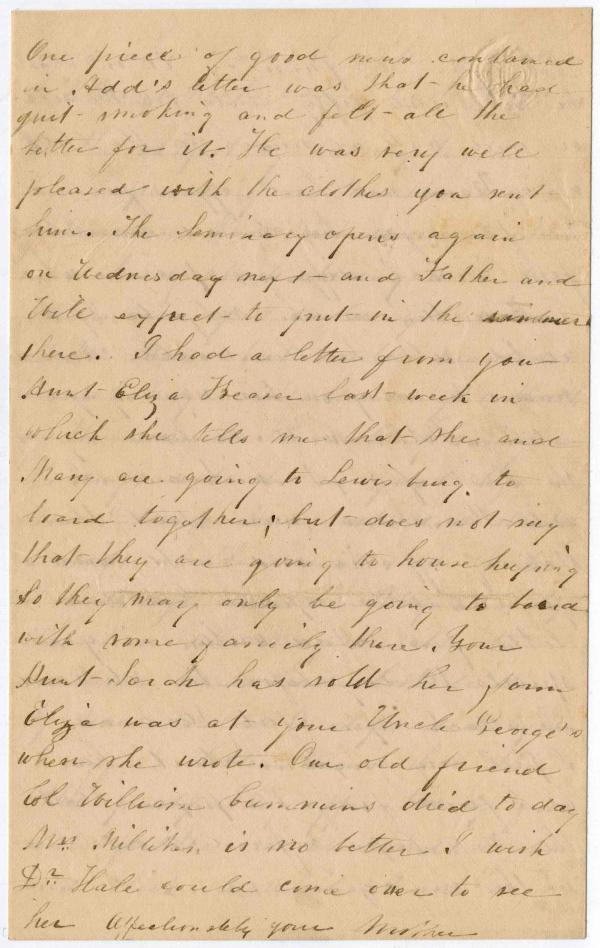 One piece of good news contained
in Add's letter was that he had
quit smoking and felt all the
better for it. He was very well
pleased with the clothes you sent
him. The Seminary opens again
on Wednesday next and Father and
Will expect to put in the
there. I had a letter from you
Aunt Eliza last week in
which she tells me that she and
Mary are going to Lewisburg to
board together; but does not say
that they are going to house keeping
So they may only be going to board
with some family there. Your
Aunt Sarah has sold her farm
Eliza was at your Uncle George's
when she wrote. Our old friend
Col William Cummins died to day
Mrs. Milliken is no better I wish
Dr. Hale could come over to see
her Affectionately your Mother